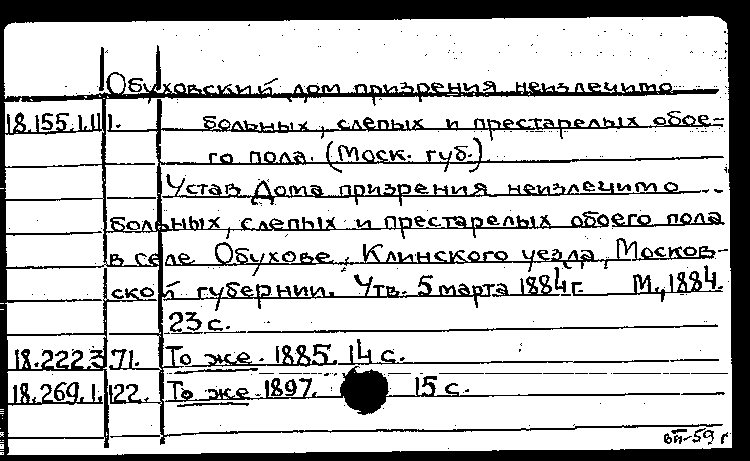 Обуховский дом призрения неизлечимо
18.155.1.111. больных, слепых и престарелых обое-
го пола. (Моск. губ.)
Устав Дома призрения неизлечимо
больных, слепых и престарелых обоего пола
в селе Обухове, Клинского уезда, Москов-
ской губернии. Утв. 5 марта 1884 г. М., 1884.
23 с.
18.222.3.71. То же. 1885. 14 с.
18.269.1.122. То же. 1897. 15 с.
вп-59 г